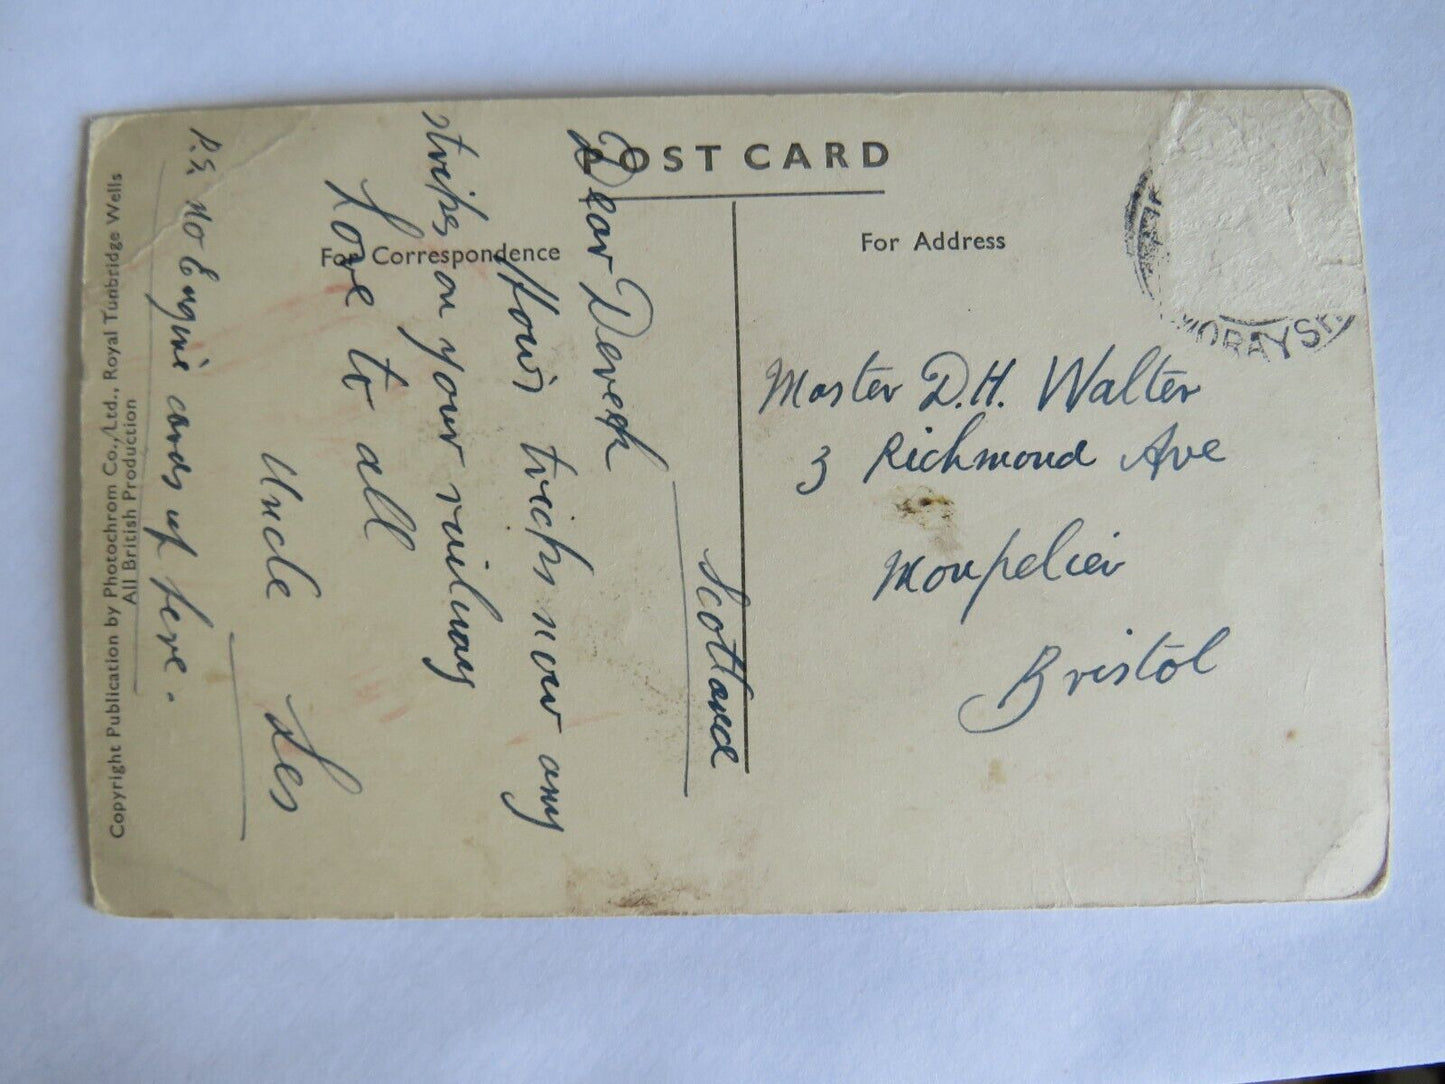 POST CARD
For Correspondence
For Address
Scotland
Dear Derek
How's tricks now any
strips on your railway
Love to all
Uncle Les
P.S. no Engine cards up here.
Master D.H. Walter
3 Richmond Ave
Monpelier
Bristol
MORAYSH
Copyright Publication by Photochrom Co., Ltd., Royal Tunbridge Wells
All British Production